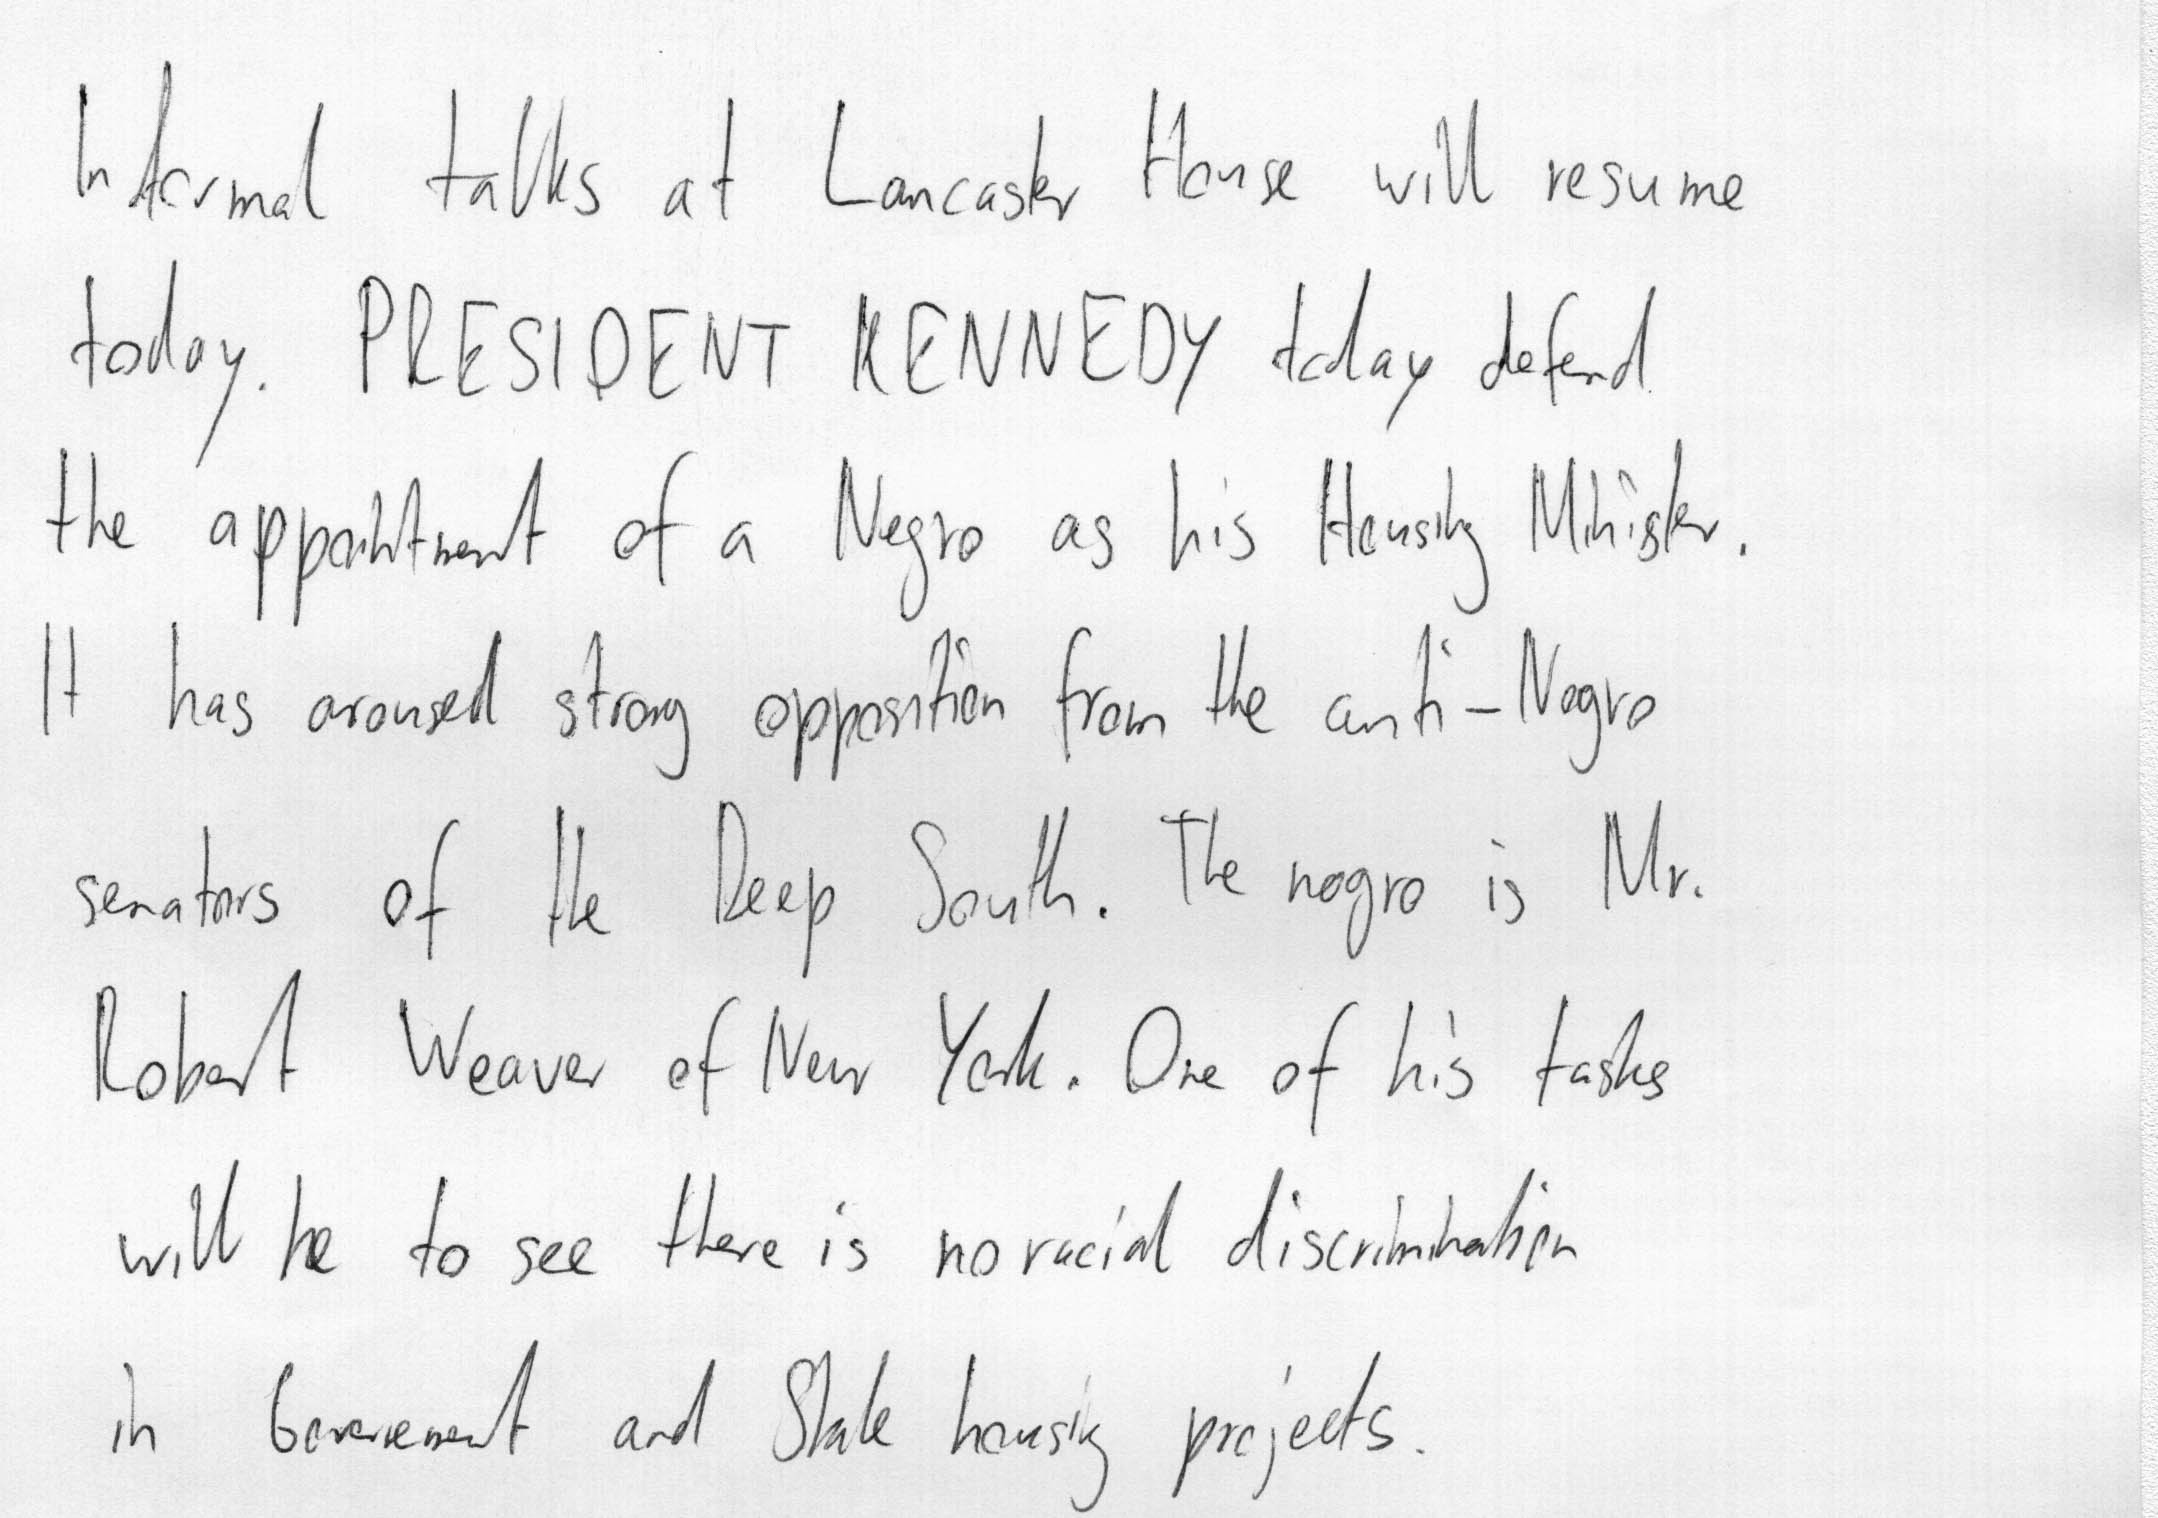 Informal talks at Lancaster House will resume
today. PRESIDENT KENNEDY today defend
the appointment of a Negro as his Housing Minister.
It has aroused strong opposition from the anti-Negro
senators of the Deep South. The negro is Mr.
Robert Weaver of New York. One of his tasks
will be to see there is no racial discrimination
in Government and State housing projects.